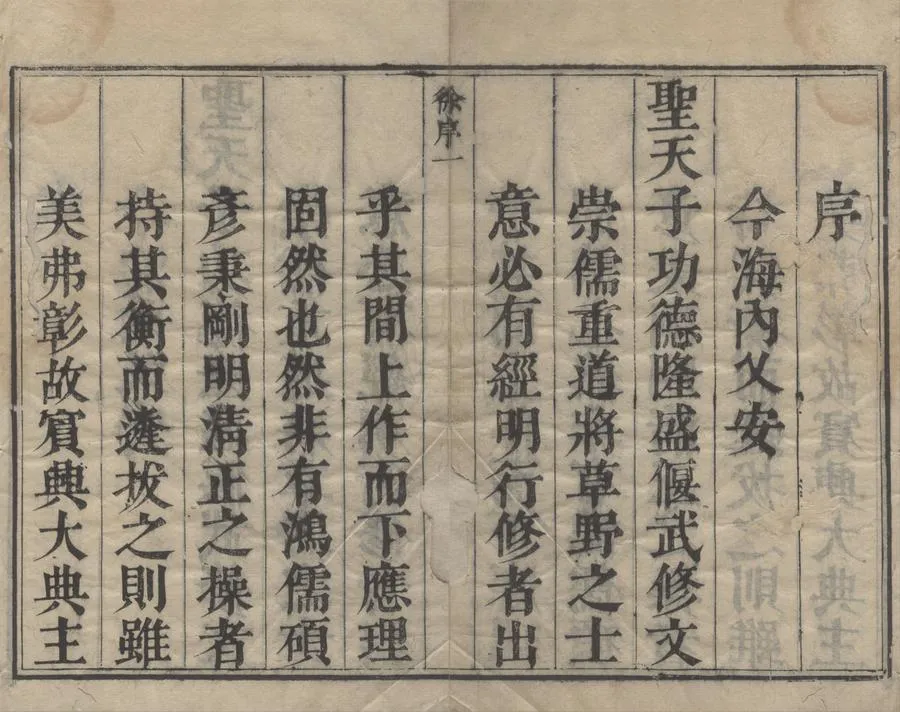 序
今海內乂安
聖天子功德隆盛偃武修文
崇儒重道將草野之士
意必有經明行修者出
徐序一
乎其間上作而下應理
固然也然非有鴻儒碩
彥秉剛明清正之操者
持其衡而遴拔之則雖
美弗彰故賔興大典主